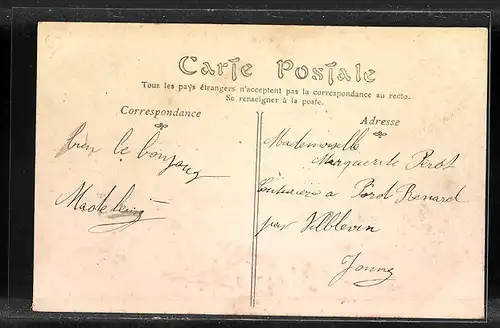 Carte Postale
Tous les pays étrangers n'acceptent pas la correspondance au recto.
Se renseigner à la poste.
Correspondance
Adresse
bien le bonjour
Madeleine
Mademoiselle
Marguerite Perot
Couturière a Pord Renard
par Villblevin
Yonne